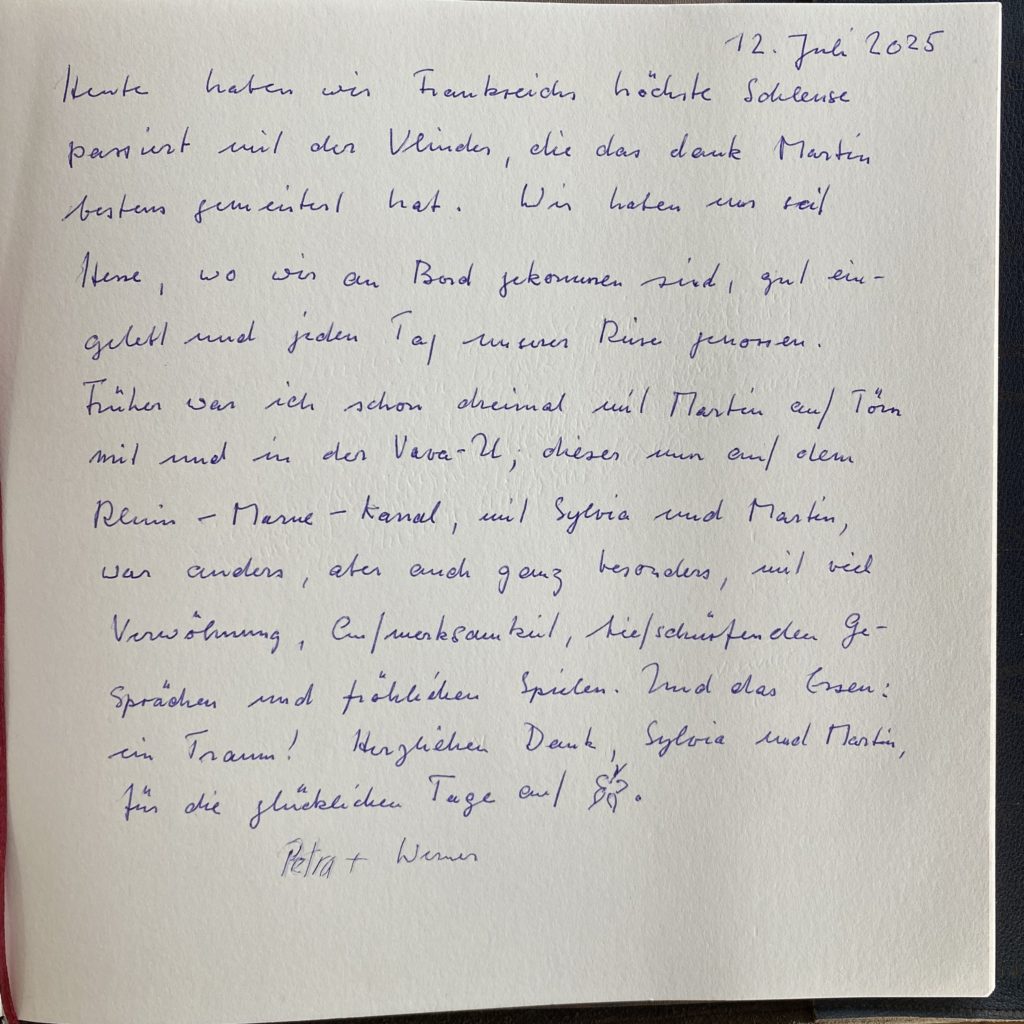 12. Juli 2025
Heute haben wir Frankreichs höchste Schleuse
passiert mit der Vlinder, die das dank Martin
bestens gemeistert hat. Wir haben uns seit
Hesse, wo wir an Bord gekommen sind, gut ein-
gelebt und jeden Tag unserer Reise genossen.
Früher war ich schon dreimal mit Martin auf Törn
mit und in der Vava-U, dieser nun auf dem
Rhein-Marne-Kanal, mit Sylvia und Martin,
war anders, aber auch ganz besonders, mit viel
Verwöhnung, Aufmerksamkeit, tiefschürfenden Ge-
sprächen und fröhlichen Spielen. Und das Essen:
ein Traum! Herzlichen Dank, Sylvia und Martin,
für die glücklichen Tage auf .
Petra + Werner